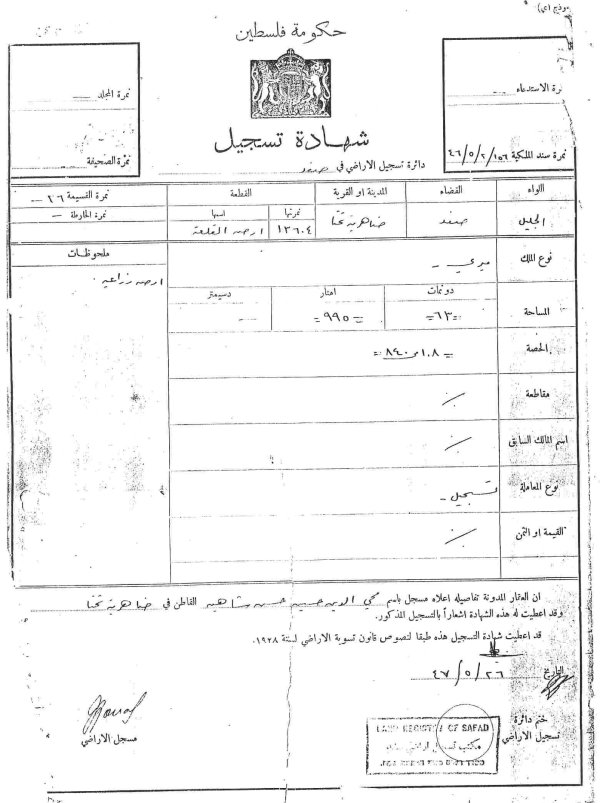 حكومة فلسطين
نمرة المجلد
نمرة الاستدعاء
شهادة تسجيل
نمرة الصحيفة
دائرة تسجيل الاراضي في صفد
نمرة سند الملكية ٤٦/٥/٢/١٥٦
اللواء
القضاء
المدينة او القرية
القطعة
نمرة القسيمة ٢٦
الجليل
صفد
ضاهرية تحتا
نمرتها
اسمها
نمرة الخارطة
١٣٦٠٤
ارض القلعة
نوع الملك
ميري
ملحوظات
ارض زراعيه
المساحة
دونمات
امتار
دسيمتر
=٦٣=
=٩٩٥=
الحصة
مقاطعة
اسم المالك السابق
نوع المعاملة
تسجيل
القيمة او الثمن
ان العقار المدونة تفاصيله اعلاه مسجل باسم محي الدين حسين حسن شاهين القاطن في ضاهرية تحتا
وقد اعطيت له هذه الشهادة اشعاراً بالتسجيل المذكور.
قد اعطيت شهادة التسجيل هذه طبقا لنصوص قانون تسوية الاراضي لسنة ١٩٢٨.
التاريخ ٤٧/٥/٢٦
ختم دائرة
تسجيل الاراضي
مسجل الاراضي
LAND REGISTRY OF SAFAD
مكتب تسجيل اراضي صفد